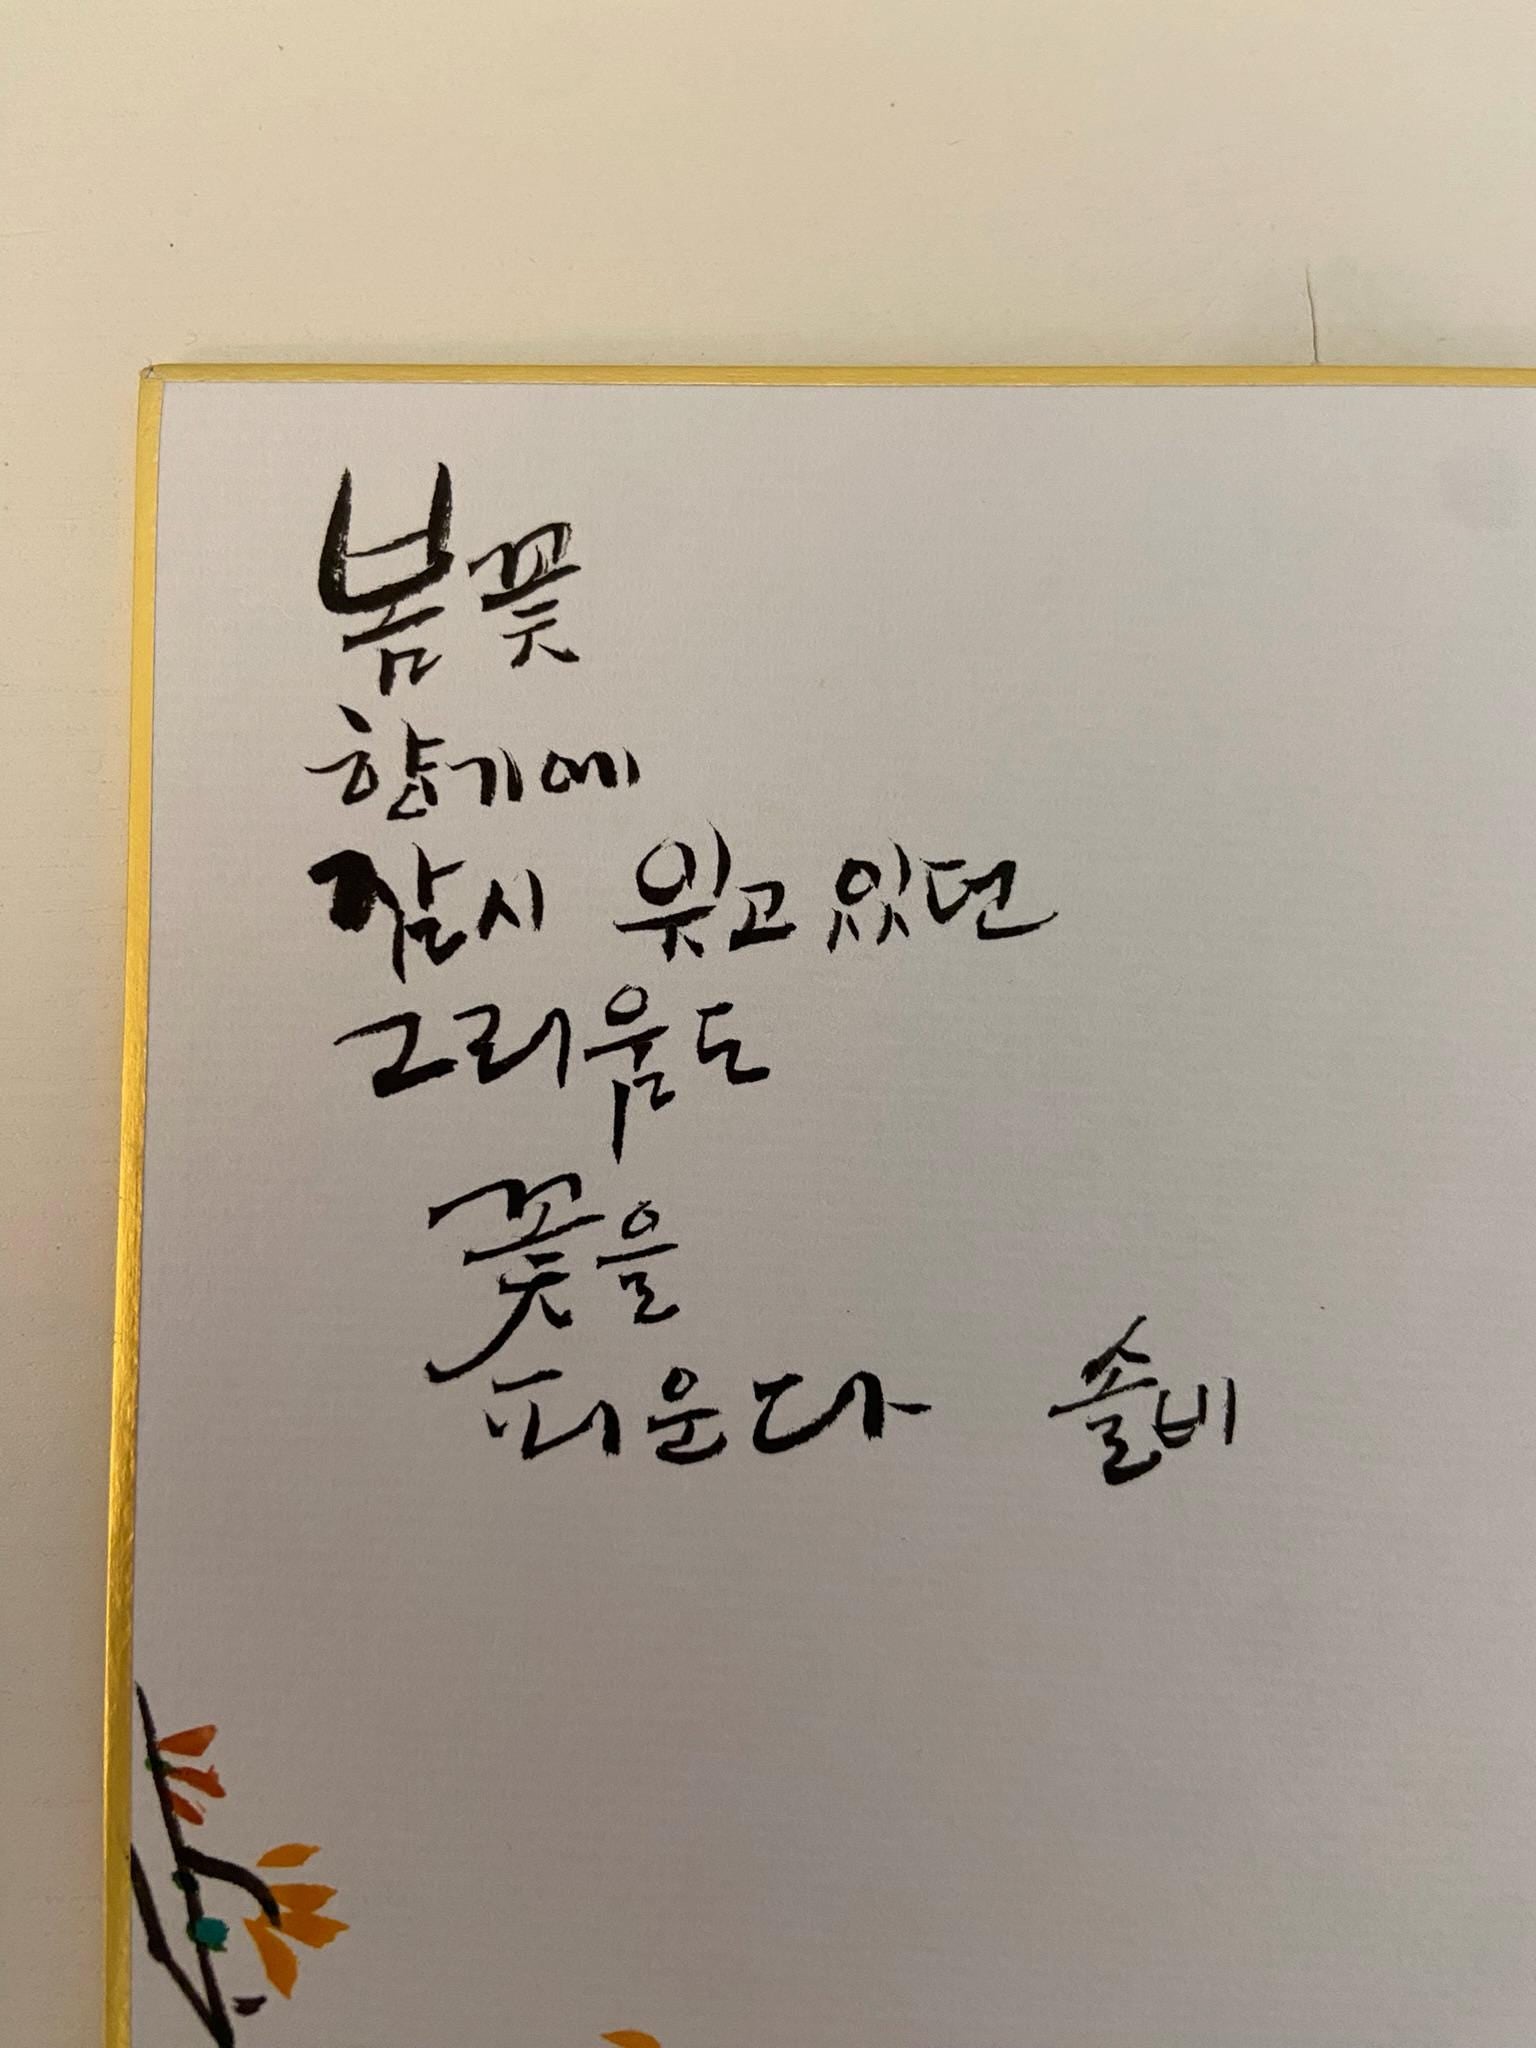 봄꽃
향기에
잠시 웃고있던
그리움도
꽃을
피운다 솔비